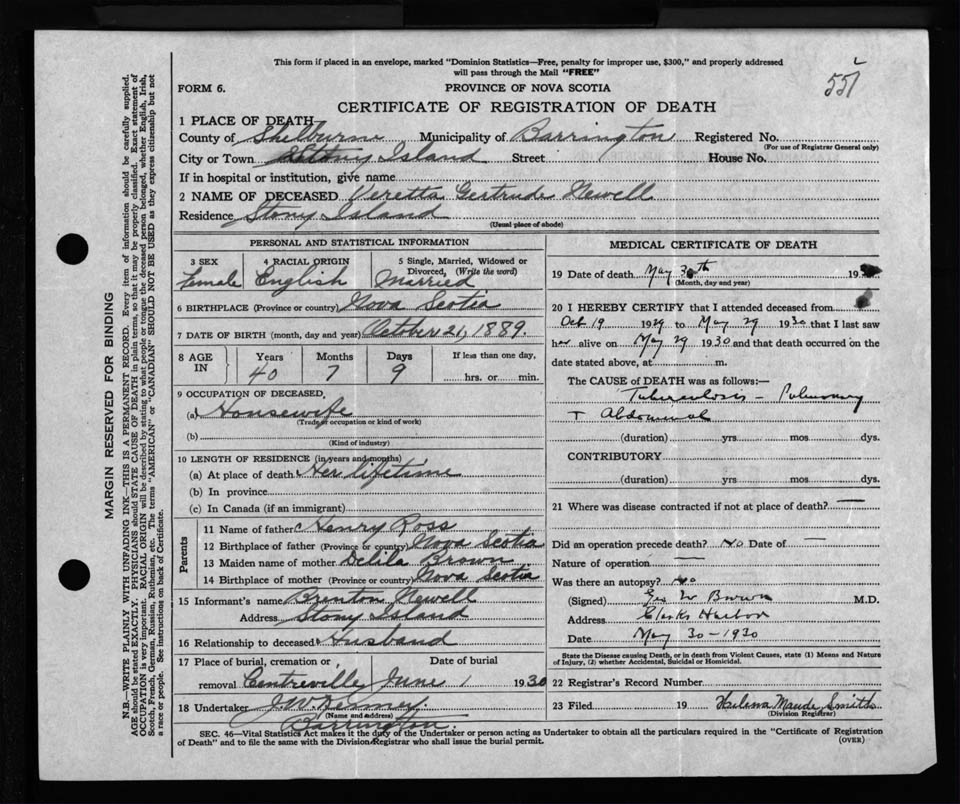 This form if placed in an envelope, marked "Dominion Statistics—Free, penalty for improper use, $300," and properly addressed
will pass through the Mail "FREE"
557
FORM 6.
PROVINCE OF NOVA SCOTIA
CERTIFICATE OF REGISTRATION OF DEATH
1 PLACE OF DEATH
County of Shelburne Municipality of Barrington Registered No.
(For use of Registrar General only)
City or Town Stony Island Street House No.
If in hospital or institution, give name
2 NAME OF DECEASED Veretta Gertrude Newell
Residence Stony Island
(Usual place of abode)
PERSONAL AND STATISTICAL INFORMATION
3 SEX Female
4 RACIAL ORIGIN English
5 Single, Married, Widowed or Divorced, (Write the word) Married
6 BIRTHPLACE (Province or country) Nova Scotia
7 DATE OF BIRTH (month, day and year) October 21, 1889.
8 AGE IN
Years Months Days If less than one day,
40 7 9 hrs. or min.
9 OCCUPATION OF DECEASED,
(a) Housewife
(Trade or occupation or kind of work)
(b)
(Kind of industry)
10 LENGTH OF RESIDENCE (in years and months)
(a) At place of death Her lifetime
(b) In province
(c) In Canada (if an immigrant)
Parents
11 Name of father Henry Ross
12 Birthplace of father (Province or country) Nova Scotia
13 Maiden name of mother Delila Brown
14 Birthplace of mother (Province or country) Nova Scotia
15 Informant's name Brenton Newell
Address Stony Island
16 Relationship to deceased Husband
17 Place of burial, cremation or Date of burial
removal Centreville June 1 1930
18 Undertaker J.W.
(Name and address)
Barrington.
MEDICAL CERTIFICATE OF DEATH
19 Date of death May 30th 19
(Month, day and year)
20 I HEREBY CERTIFY that I attended deceased from
Oct 19 1929 to May 29 1930 that I last saw
her alive on May 29 1930 and that death occurred on the
date stated above, at m.
The CAUSE of DEATH was as follows:—
Tuberculosis – Pulmonary
+ Abdominal
(duration) yrs. mos. dys.
CONTRIBUTORY
(duration) yrs. mos. dys.
21 Where was disease contracted if not at place of death? —
Did an operation precede death? no Date of —
Nature of operation —
Was there an autopsy? no
(Signed) Geo W Brown M.D.
Address Clarks Harbor
Date May 30 – 1930
State the Disease causing Death, or in death from Violent Causes, state (1) Means and Nature
of Injury, (2) whether Accidental, Suicidal or Homicidal.
22 Registrar's Record Number
23 Filed 19 Maude Smith
(Division Registrar)
SEC. 46—Vital Statistics Act makes it the duty of the Undertaker or person acting as Undertaker to obtain all the particulars required in the "Certificate of Registration
of Death" and to file the same with the Division Registrar who shall issue the burial permit.
(OVER)
MARGIN RESERVED FOR BINDING
N.B.—WRITE PLAINLY WITH UNFADING INK—THIS IS A PERMANENT RECORD. Every item of information should be carefully supplied.
AGE should be stated EXACTLY. PHYSICIANS should STATE CAUSE OF DEATH in plain terms, so that it may be properly classified. Exact statement of
OCCUPATION is very important. RACIAL ORIGIN will be described by stating to what people or tongue the deceased person belonged, whether English, Irish,
Scotch, French, German, Russian, Ruthenian, etc. The terms "AMERICAN" or "CANADIAN" SHOULD NOT BE USED as they express citizenship but not
a race or people. See instructions on back of Certificate.